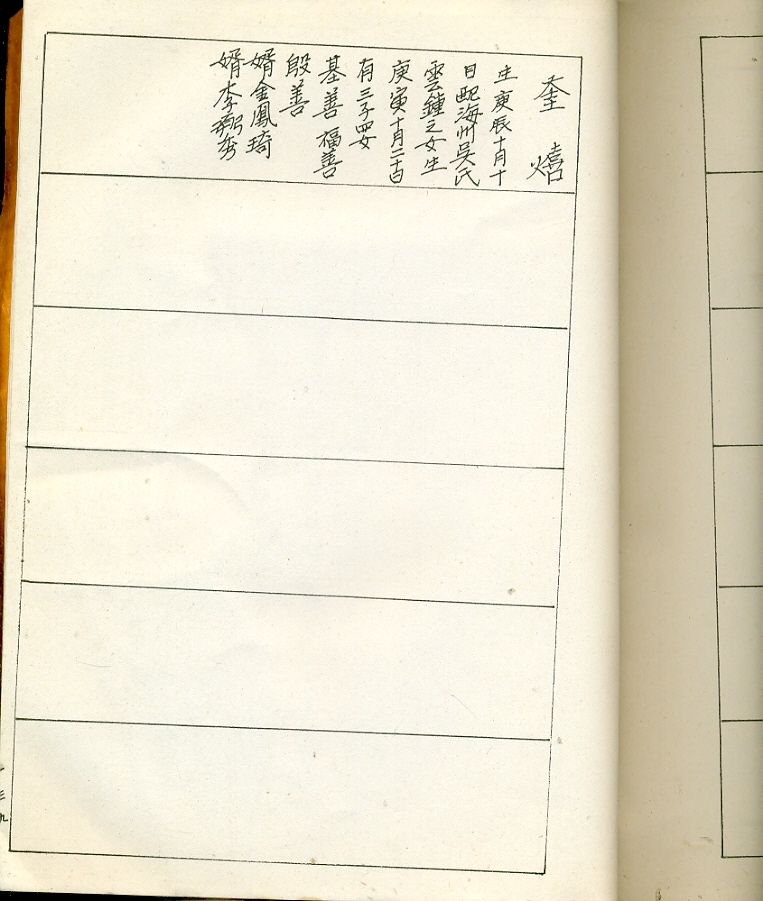 奎熺
生庚辰十月十
日配海州吳氏
雲鍾之女生
庚寅十月二十日
有三子四女
基善 福善
殷善
婿金鳳琦
婿李弼秀